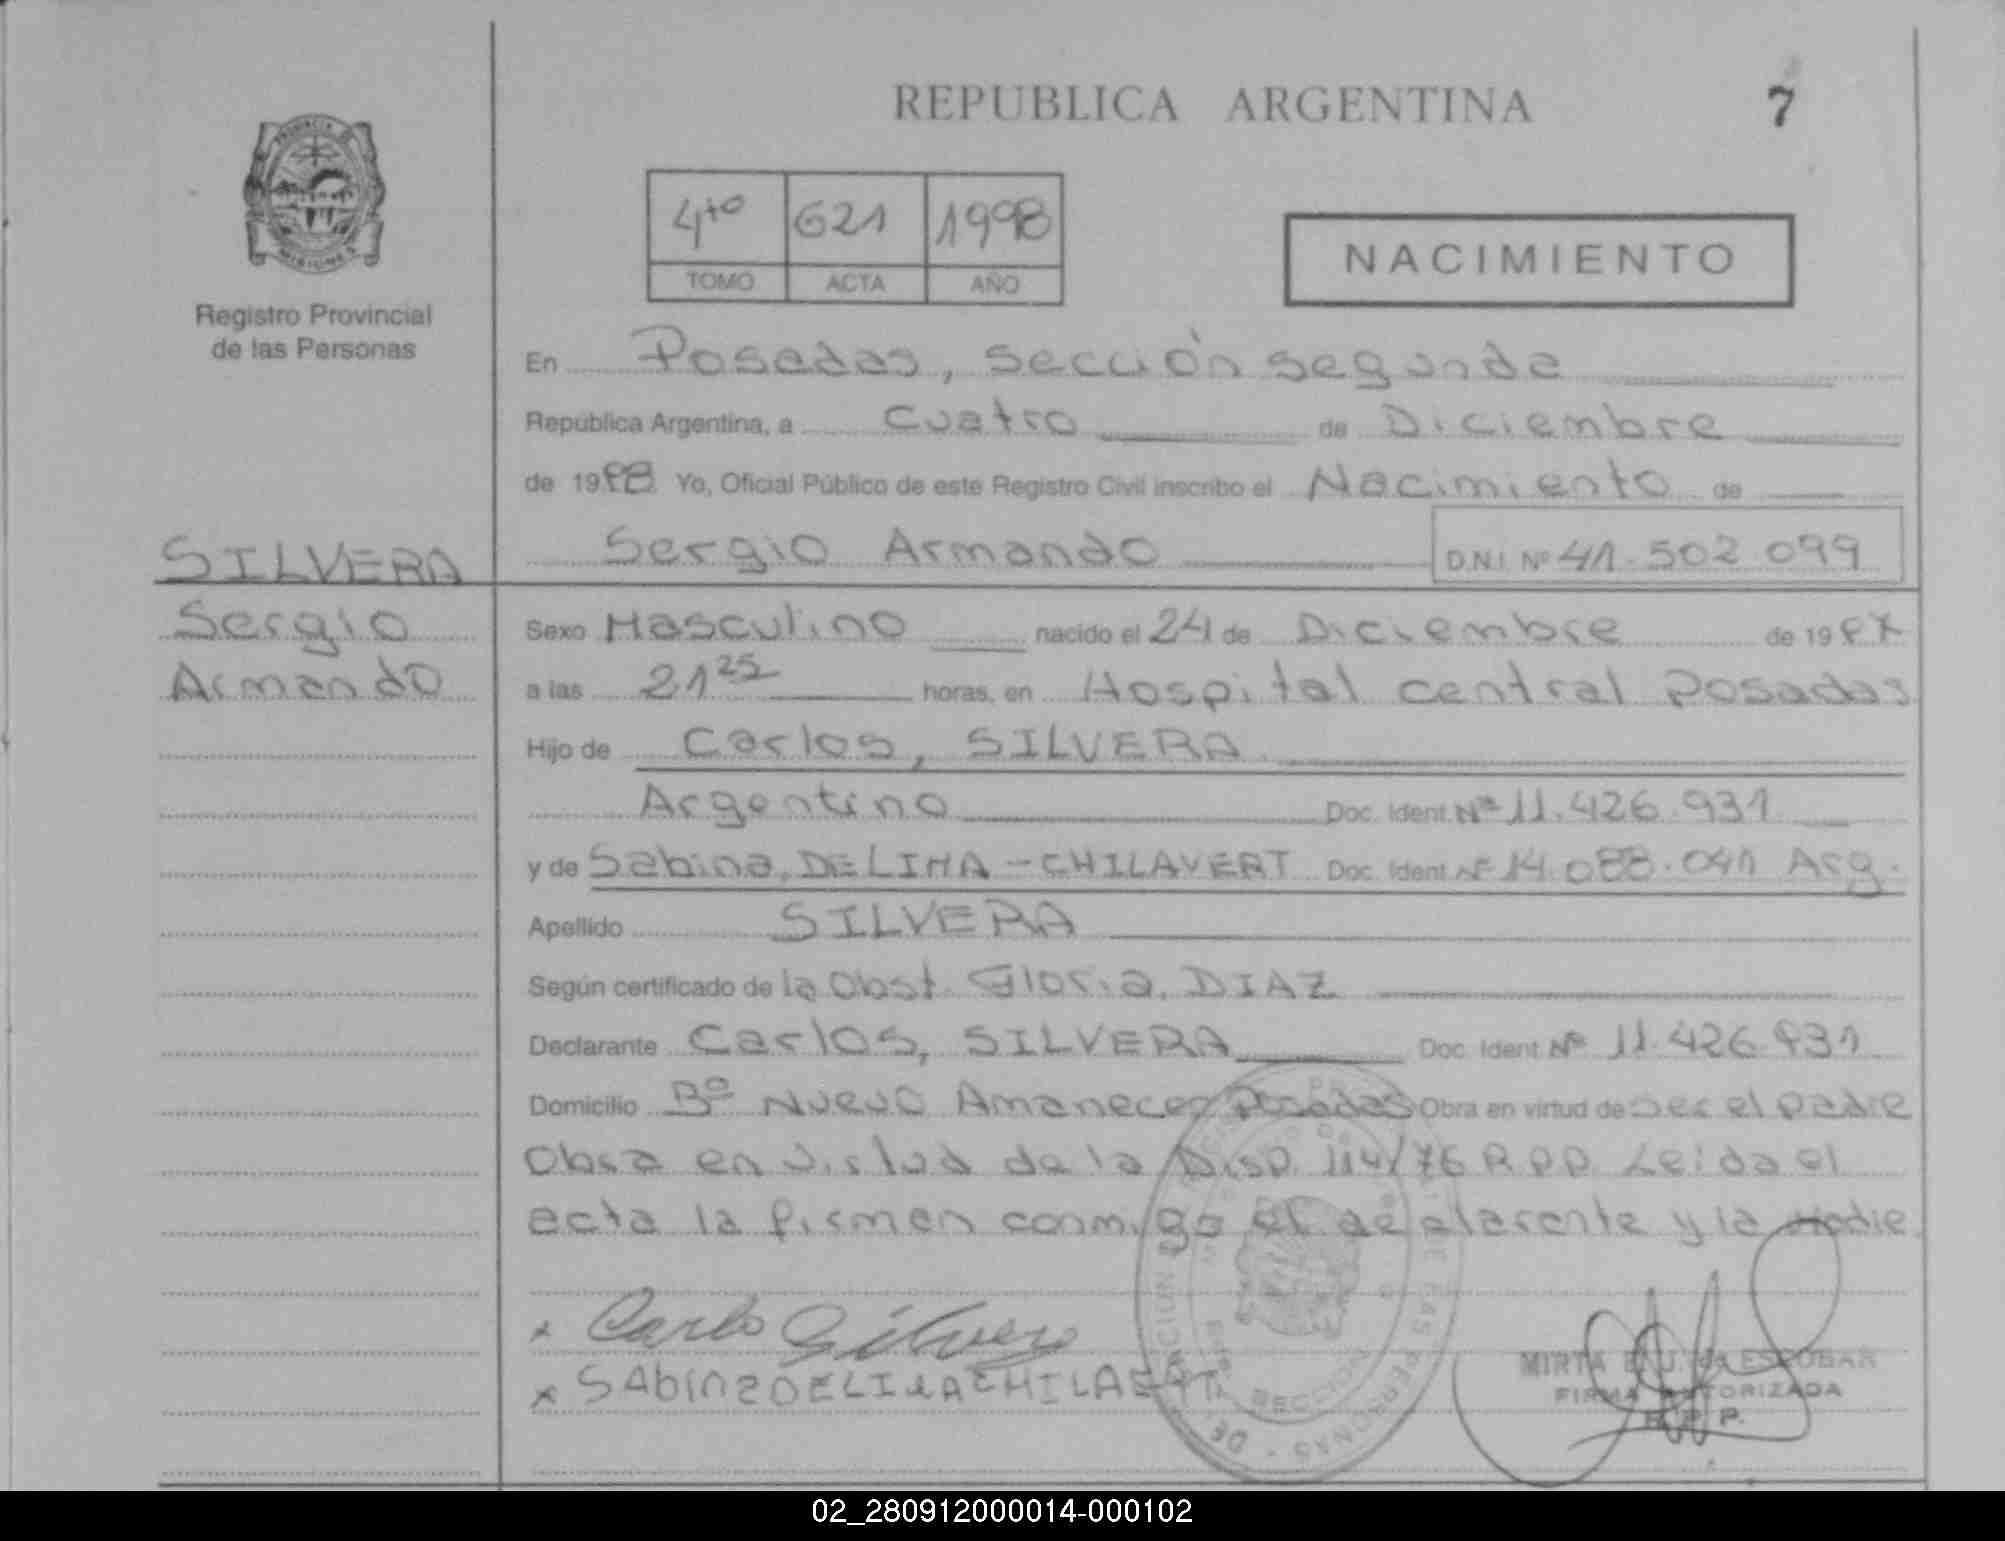 REPUBLICA ARGENTINA
7
PROVINCIA DE
MISIONES
Registro Provincial
de las Personas
4to 621 1998
TOMO ACTA AÑO
NACIMIENTO
En Posadas, sección segunda
República Argentina, a Cuatro de Diciembre
de 1998 Yo, Oficial Público de este Registro Civil inscribo el Nacimiento de
Sergio Armando D.N.I. Nº 41.502.099
SILVERA
Sergio
Armando
Sexo Masculino nacido el 24 de Diciembre de 1997
a las 21 25 horas, en Hospital central Posadas
Hijo de Carlos, SILVERA
Argentino Doc. Ident. Nº 11.426.931
y de Sabina, DE LIMA - CHILAVERT Doc. Ident Nº 14.088.041 Arg.
Apellido SILVERA
Según certificado de la Obst. Gloria, DIAZ
Declarante Carlos, SILVERA Doc. Ident Nº 11.426.931
Domicilio Bº Nuevo Amanecer Posadas Obra en virtud de ser el padre
Obra en virtud de la Disp. 114/76 R.P.P. Leida el
acta la firman conmigo el declarante y la Madre
x Carlo Silvero
x SAbinaDELIMACHILAERT
MIRTA ESCOBAR
FIRMA AUTORIZADA
R. P. P.
02_280912000014-000102